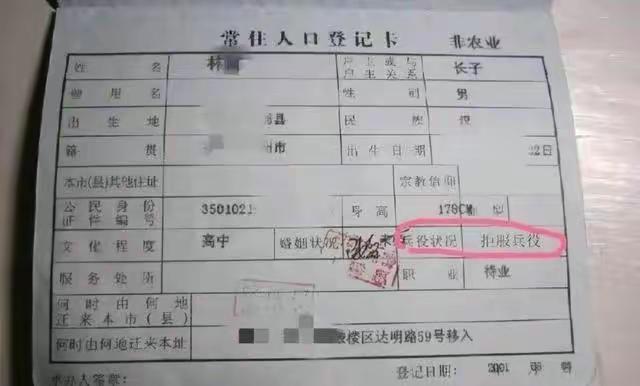 常住人口登记卡 非农业
姓名 林 户主或与户主关系 长子
曾用名 性别 男
出生地 县 民族 汉
籍贯 市 出生日期 22日
本市(县)其他住址 宗教信仰
公民身份证件编号 3501021 身高 178CM 血型
文化程度 高中 婚姻状况 未 兵役状况 拒服兵役
服务处所 职业 待业
何时由何地迁来本市(县)
何时由何地迁来本址 楼区达明路59号移入
承办人签章: 登记日期: